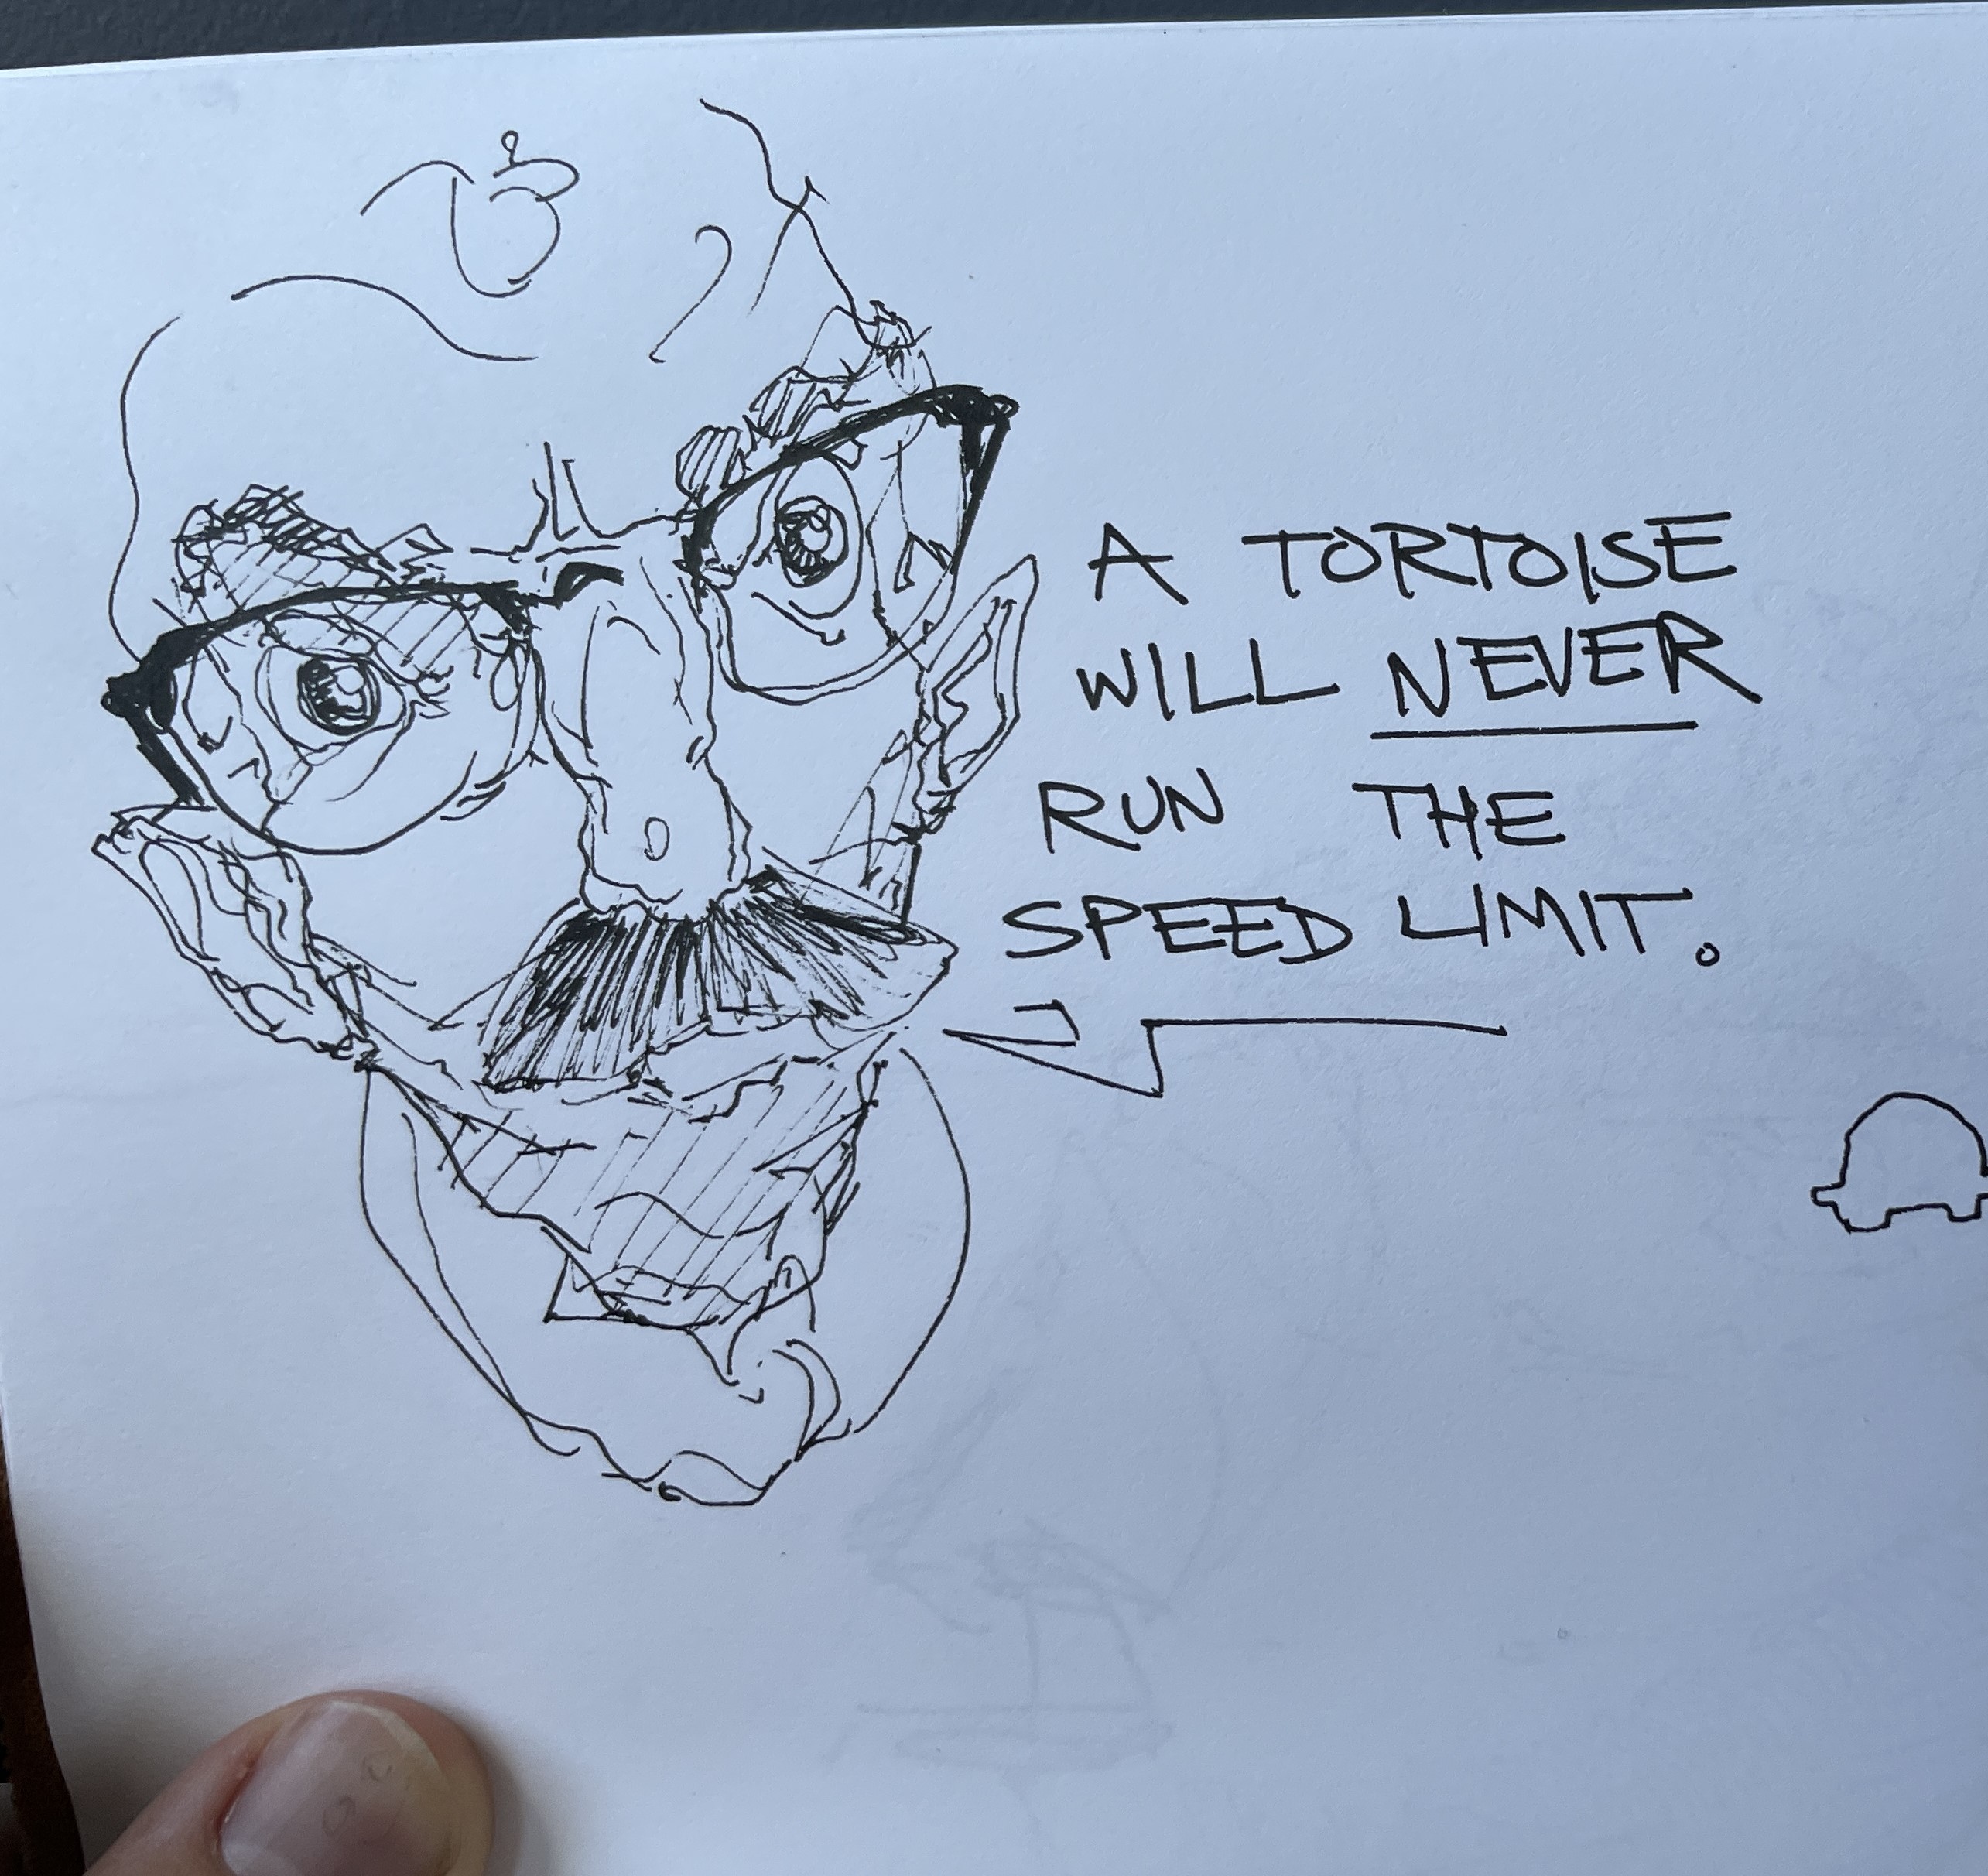 A TORTOISE
WILL NEVER
RUN THE
SPEED LIMIT.